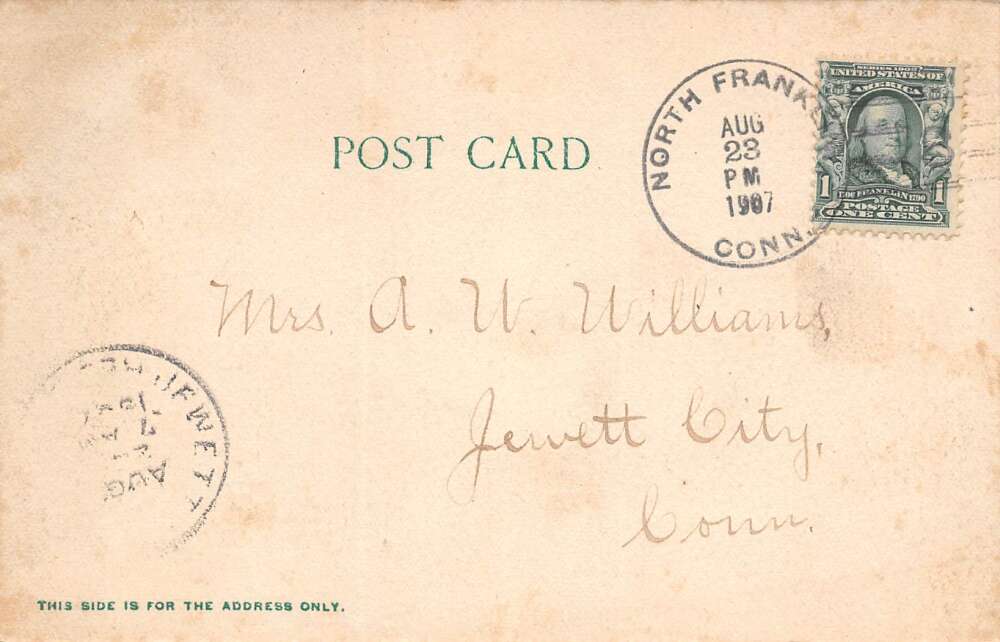 POST CARD
NORTH FRANKL
AUG
23
PM
1907
CONN.
SERIES 1902
UNITED STATES OF
AMERICA
1 1706 FRANKLIN 1790 1
POSTAGE
ONE CENT
Mrs. A. W. Williams,
Jewett City,
Conn.
JEWETT
AUG
THIS SIDE IS FOR THE ADDRESS ONLY.